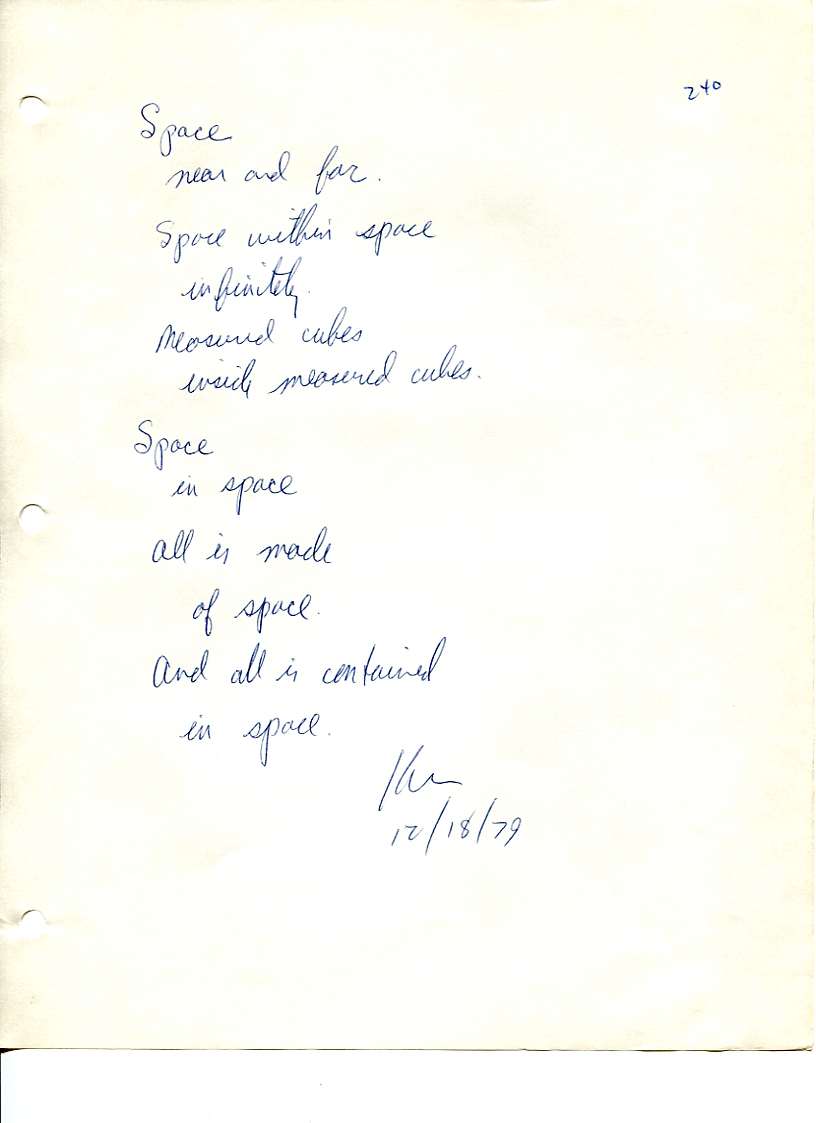 240
Space
near and far.
Space within space
infinitely.
Measured cubes
inside measured cubes.
Space
in space
all is made
of space.
And all is contained
in space.
Ken
12/18/79